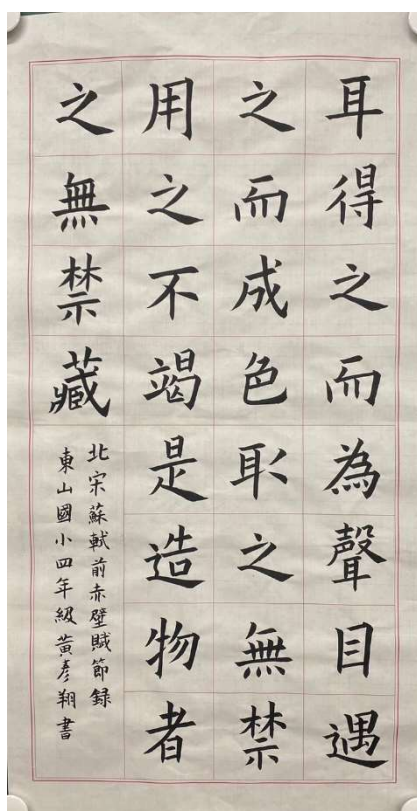 耳得之而為聲目遇
之而成色取之無禁
用之不竭是造物者
之無禁藏
北宋蘇軾前赤壁賦節録
東山國小四年級黃彥翔書